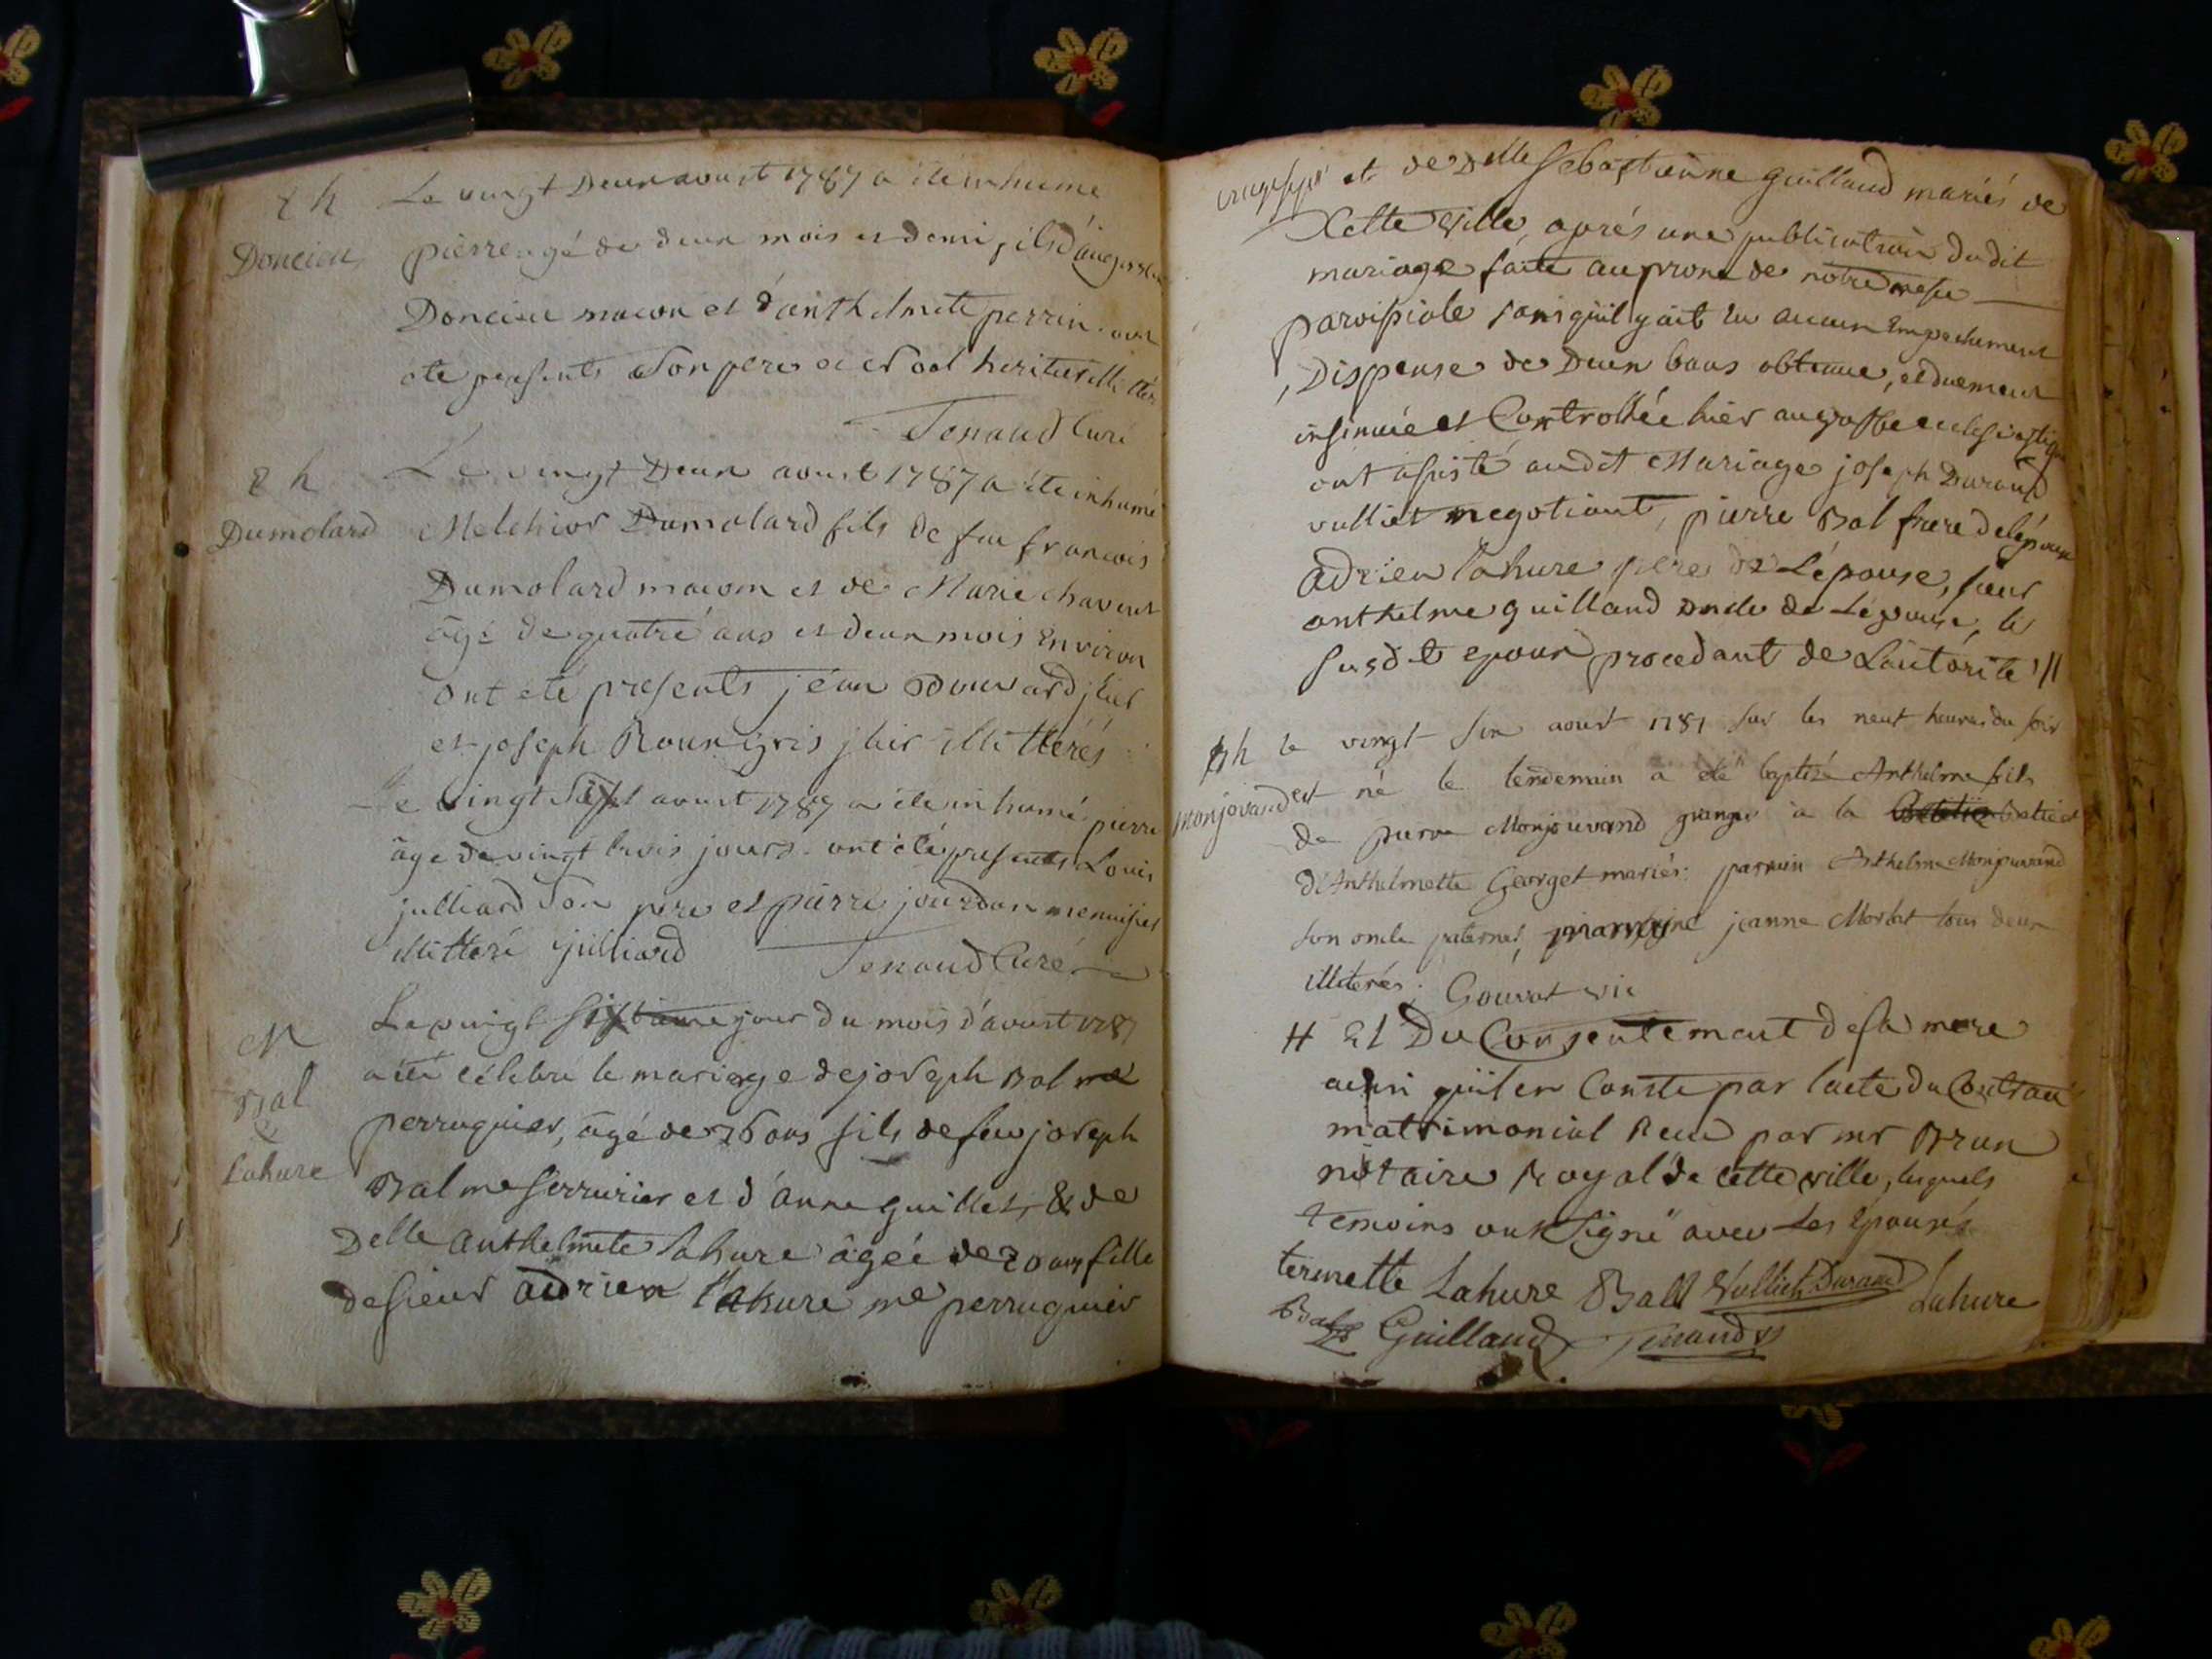 Le vingt Deux aoust 1787 a été inhumé
Doncieu
pierre agé de deux mois et demi, fils d'
Doncieu macon et d'anthelmete perrin. ont
été presents son pere et
Tenaud Curé
Le vingt Deux aoust 1787 a été inhumé
Dumolard
Melchior Dumolard fils de feu francois
Dumolard macon et de Marie chavent
âgé de quatre ans et deux mois Environ
ont été presents jéan
et joseph Rouxgris jlier illittérés
Le vingt Sixt aoust 1787 a été inhumé pierre
âgé de vingt trois jours. ont été presents Louis
julliard Son pere et pierre jourdan menuisier
illitteré Julliard
Tenaud Curé
M
Bal
&
Lahure
Le vingt sixtieme jour du mois d'aoust 1787
a été célébré le mariage de joseph Bal me
perruquier, âgé de 26 ans fils de feu joseph
Bal me serrurier et d'anne guillet, & de
Delle anthelmete Lahure âgée de 20 ans fille
de sieur adrien lahure me perruquier
et de Delle Sebastienne guilland mariés de
Cette ville, aprés une publication dudit
mariage faite au prone de notre messe
paroissiale sans quil y ait Eu aucun Empechement
, Dispense de Deux bans obtenue, et duement
insinuée et Controllée hier au greffe ecclesiastique
ont assisté audit Mariage joseph Durand
vulliet negotiant, pierre Bal frere de lépoux
adrien lahure pere de Lépouse, sieur
anthelme guilland oncle de Lépouse, le
susdit epoux procedant de Lautorité //
monjovand
le vingt six aoust 1787 sur les neuf heures du soir
est né le lendemain a été baptizé Anthelme fils
de pierre Monjouvand granger a la batie et
d'Anthelmette Georget mariés: parrain Anthelme Monjouvand
son oncle paternel, marraine jeanne Morlat tous deux
illiterés. Gouvat vic
// Et Du Consentement de sa mere
ainsi quil en Conste par lacte du Contrat
matrimonial Recu par mr Brun
notaire Royal de cette ville, lesquels
temoins ont signé avec Les Epousés
termette Lahure Ball Vulliet Durand Lahure
Bal Guilland Tenaud